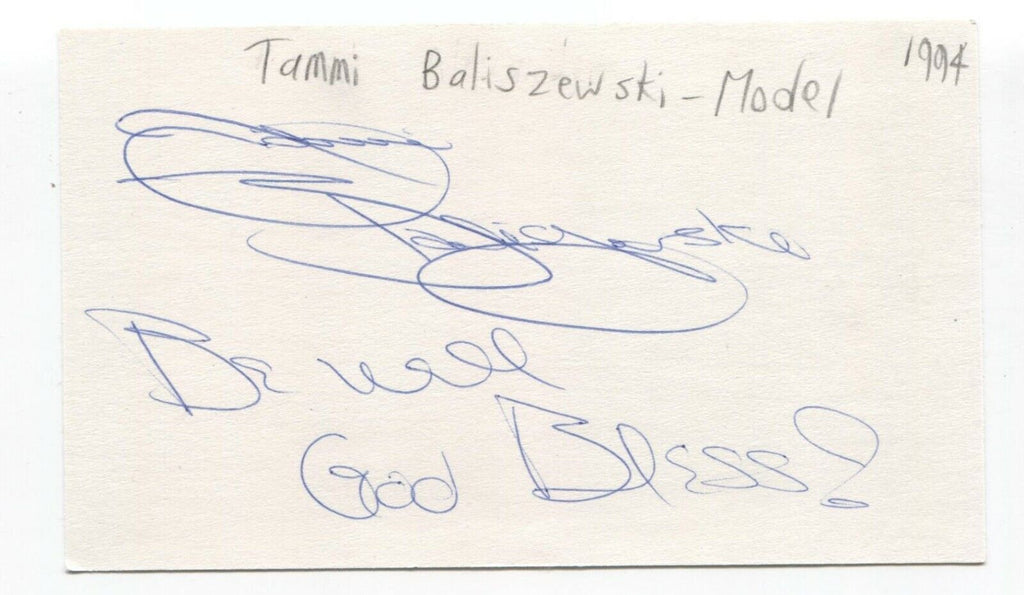 Tammi Baliszewski - Model 1994
Tammi
Baliszewski
Be well
God Bless!